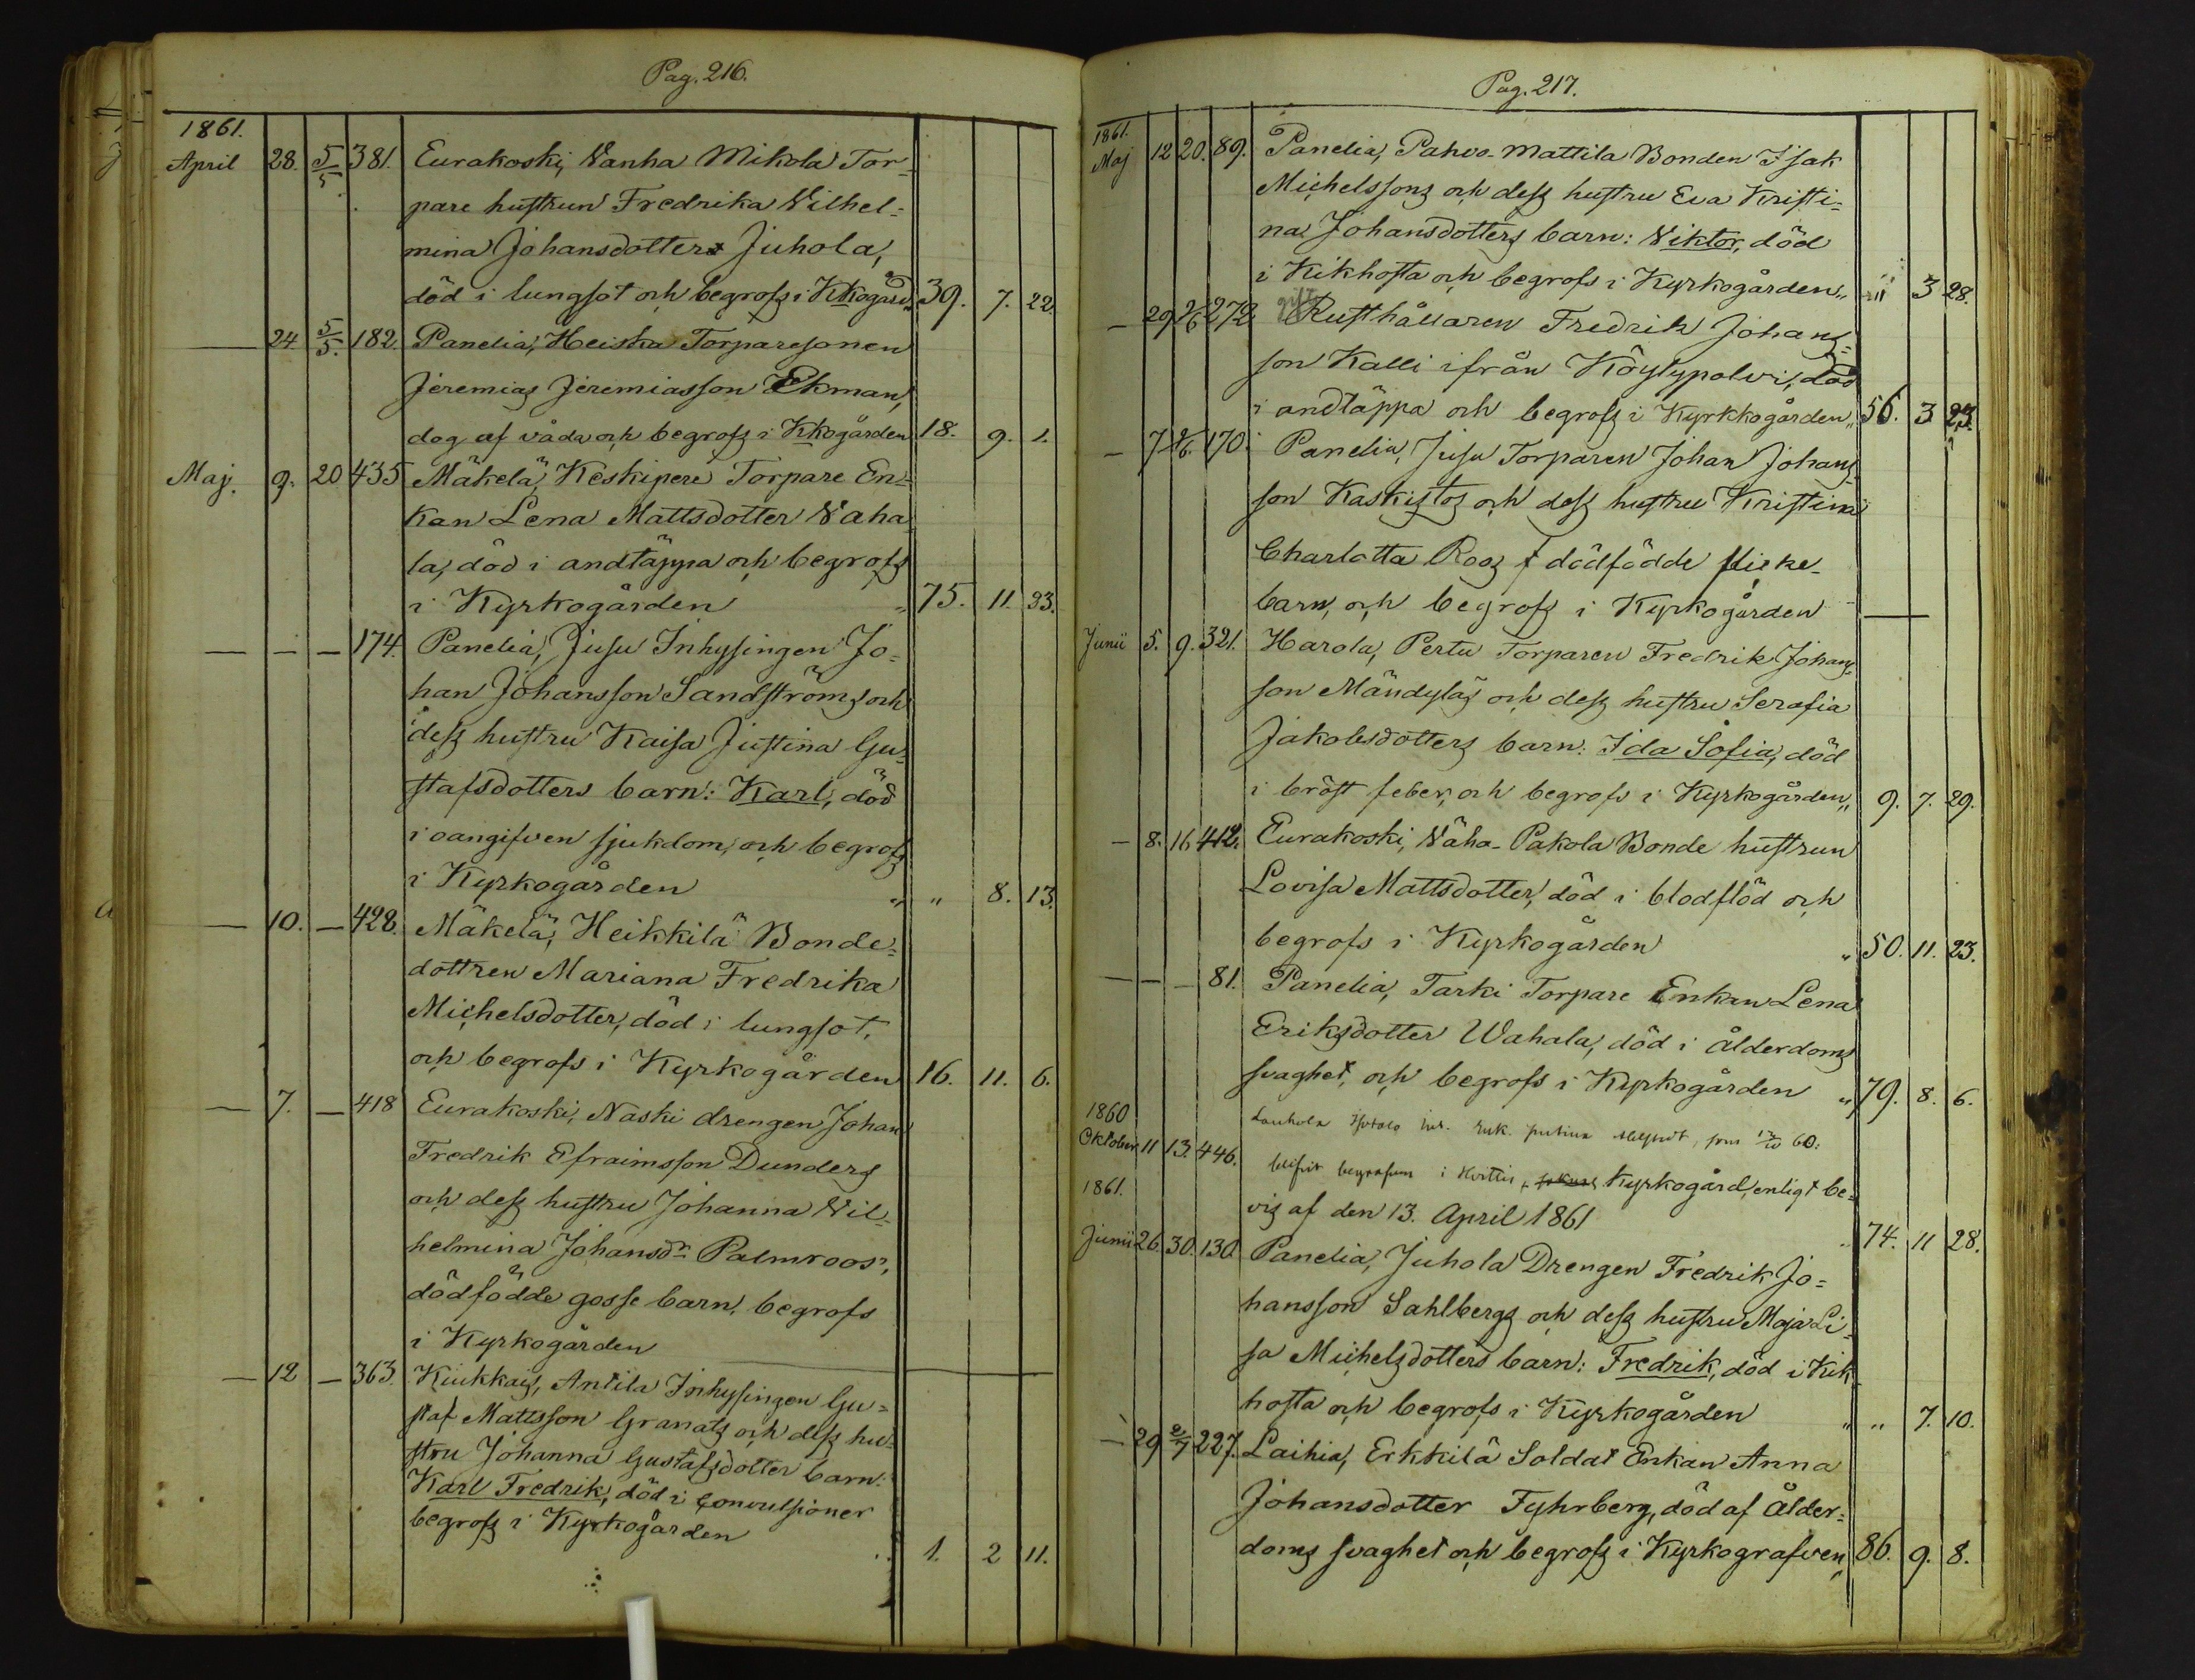 Pag. 216.
1861.
April 28. 5/5 381. Eurakoski, Wanha Mikola Tor-
pare hustrun Fredrika Wilhel-
mina Johansdotter Juhola,
död i lungsot och begrofs i Kkogård„ 39. 7. 22.
— 24 5/5. 182. Panelia, Heiska Torparesonen
Jeremias Jeremiasson Ekman,
dog af våda och begrofs i Kkogården 18. 9. 1.
Maj. 9. 20 435 Mäkelä, Keskipere Torpare En-
kan Lena Mattsdotter Waha
la, död i andtäppa och begrofs
i Kyrkogården „ 75. 11. 23.
— — — 174. Panelia, Jusu Inhysingen Jo-
han Johansson Sandströms och
dess hustru Kaisa Justina Gu-
stafsdotters barn: Karl, död
i oangifven sjukdom, och begrofs
i Kyrkogården „ „ 8. 13.
— 10. — 428. Mäkelä, Heikkilä Bonde-
dottren Mariana Fredrika
Michelsdotter, död i lungsot,
och begrofs i Kyrkogården 16. 11. 6.
— 7. — 418 Eurakoski, Naski drengen Johan
Fredrik Efraimsson Dunders
och dess hustru Johanna Wil-
helmina Johansdr Palmroos,
dödfödde gosse barn, begrofs
i Kyrkogården
— 12 — 363. Kiukkais, Antila Inhysingen Gu-
staf Mattsson Granats och dess hu-
stru Johanna Gustafsdotter barn:
Karl Fredrik, död i Convulsioner
begrofs i Kyrkogården 1. 2 11.
Pag. 217.
1861.
Maj 12 20. 89. Panelia, Pahvo-Mattila Bonden Isak
Michelssons och dess hustru Eva Kristi-
na Johansdotters barn: Viktor, död
i Kikhosta och begrofs i Kyrkogården„ „ 3 28.
gift
— 29 2/6 272 Rusthållaren Fredrik Johans-
son Kalli ifrån Köylypolvi, död
i andtäppa och begrofs i Kyrkkogården„ 56. 3
— 7 170. Panelia, Jusu Torparen Johan Johans
son Kaskistos och dess hustru Kristina
Charlotta Roos dödfödde flicke-
barn, och begrofs i Kyrkogården —
Junii 5. 9. 321. Harola, Pertu Torparen Fredrik Johans
son Mändyläs och dess hustru Serafia
Jakobsdotters barn: Ida Sofia, död
i bröst feber, och begrofs i Kyrkogården„ 9. 7. 29.
— 8. 16 412. Eurakoski, Wäha-Pakola Bonde hustrun
Lovisa Mattsdotter, död i blodflöd och
begrofs i Kyrkogården „ 50. 11. 23.
— — — 81. Panelia, Tarki Torpare Enkan Lena
Eriksdotter Wahala, död i ålderdoms
svaghet, och begrofs i Kyrkogården „ 79. 8. 6.
1860
Oktober 11 13. 446. som 60.
blifvit begrafven i Kyrkogård, enligt be-
vis af den 13. April 1861 74. 11 28.
1861.
Junii 26. 30. 130. Panelia, Juhola Drengen Fredrik Jo-
hansson Sahlbergs och dess hustru Maja Li-
sa Michelsdotters barn: Fredrik, död i Kik-
hosta och begrofs i Kyrkogården „ „ 7. 10.
— 29 2/7 227. Laihia, Erkkilä Soldat Enkan Anna
Johansdotter Fyhrberg, död af Ålder-
doms svaghet och begrofs i Kyrkografven„ 86. 9. 8.